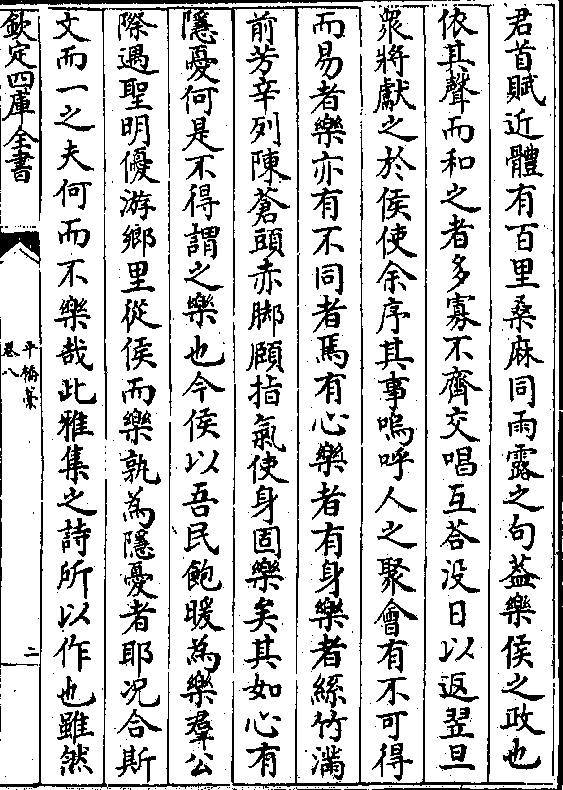 君首賦近體有百里桑麻同雨露之句葢樂侯之政也
依其聲而和之者多寡不齊交唱互荅没日以返翌旦
衆將獻之於侯使余序其事嗚呼人之聚會有不可得
而易者樂亦有不同者焉有心樂者有身樂者絲竹滿
前芳辛列陳蒼頭赤脚頤指氣使身固樂矣其如心有
隱憂何是不得謂之樂也今侯以吾民飽暖為樂羣公
際遇聖明優游鄉里從侯而樂孰為隱憂者耶况合斯
文而一之夫何而不樂哉此雅集之詩所以作也雖然
欽定四庫全書
平橋藁
卷八
二